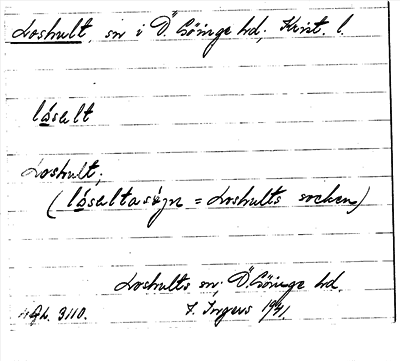 Loshult, sn i Ö. Göinge hd, Krist. l.
lòsalt
Loshult,
(lòsaltasógn = Loshults socken)
Loshults sn, Ö. Göinge hd.
3110. I. Ingers 1941.